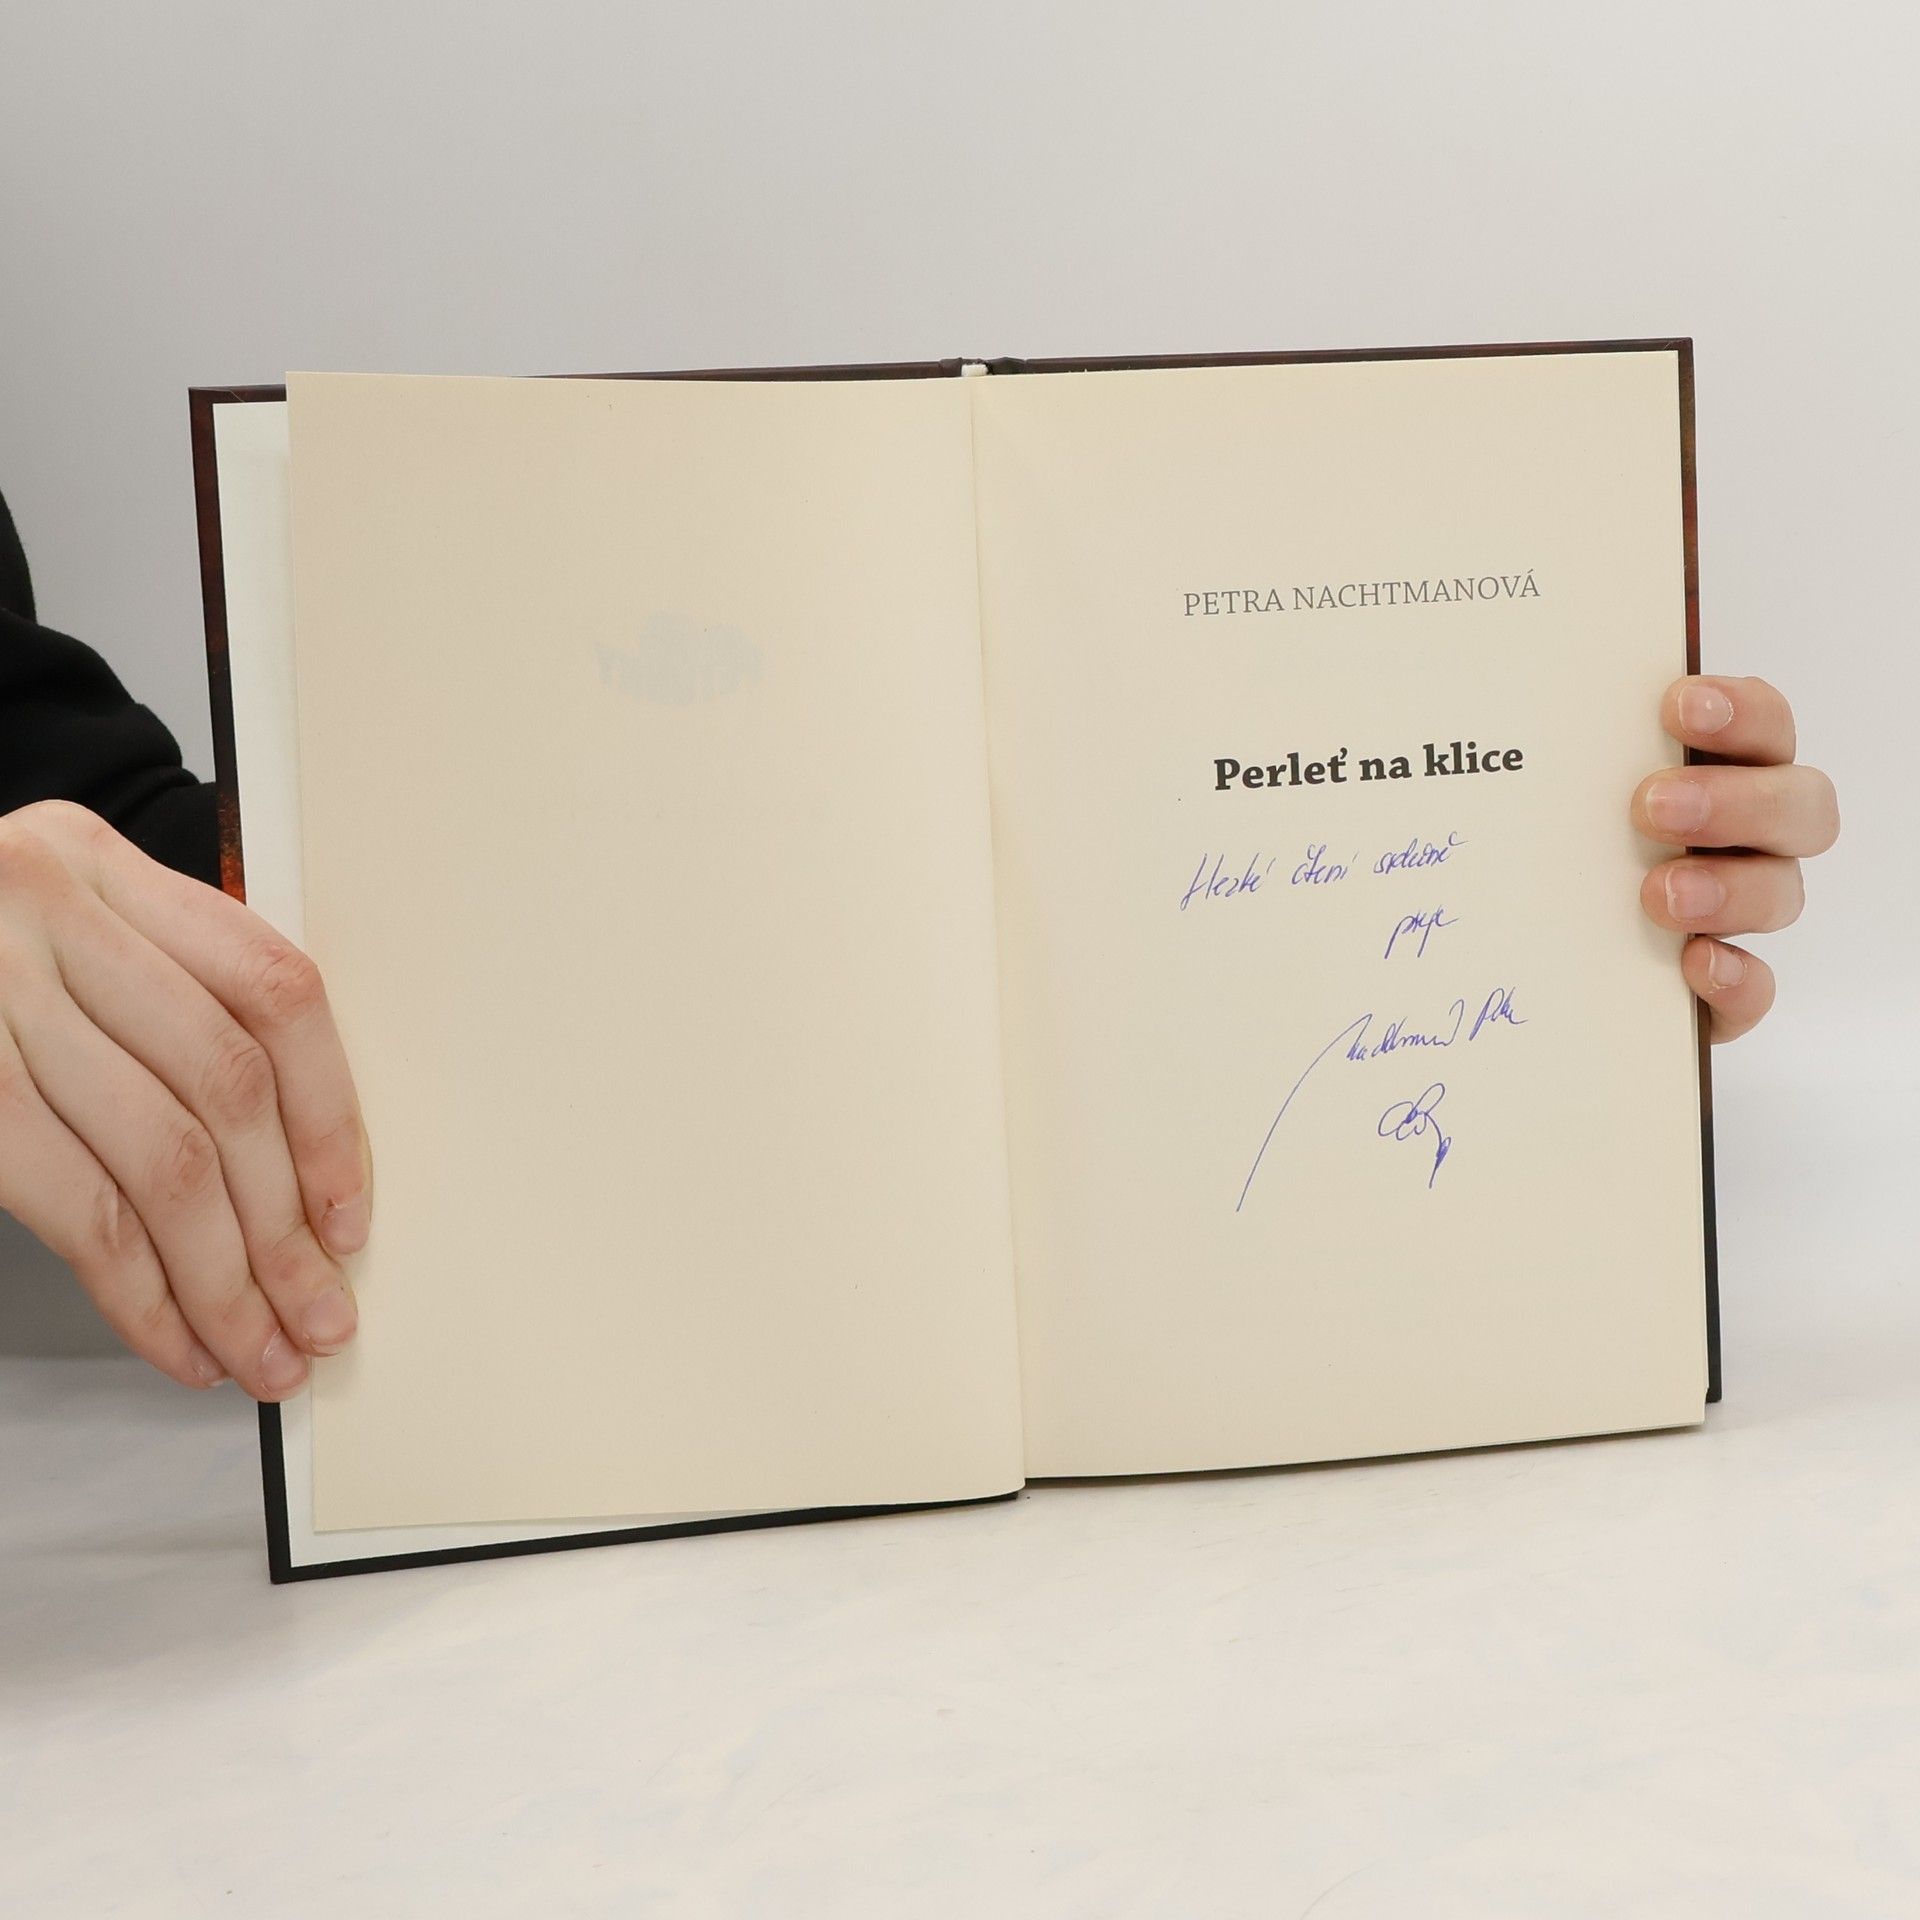 PETRA NACHTMANOVÁ
Perleť na klice
Hezké čtení srdečně
přeje
Nachtmanová Petra